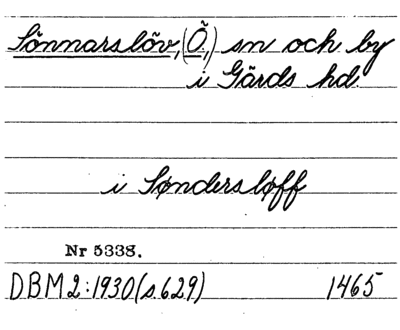 Sönnarslöv, (Ö.,) sn och by
i Gärds hd.
i Søndersløff
Nr 5338.
DBM 2:1930 (s. 629) 1465